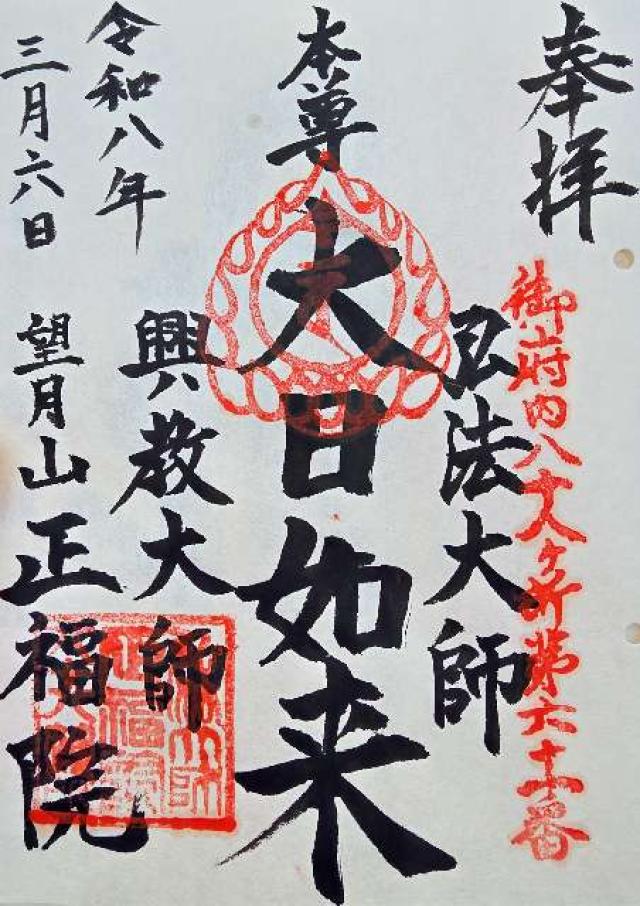 奉拝
御府内八十八ヶ所第六十一番
弘法大師
本尊
大日如来
興教大師
令和八年
三月六日
望月山正福院